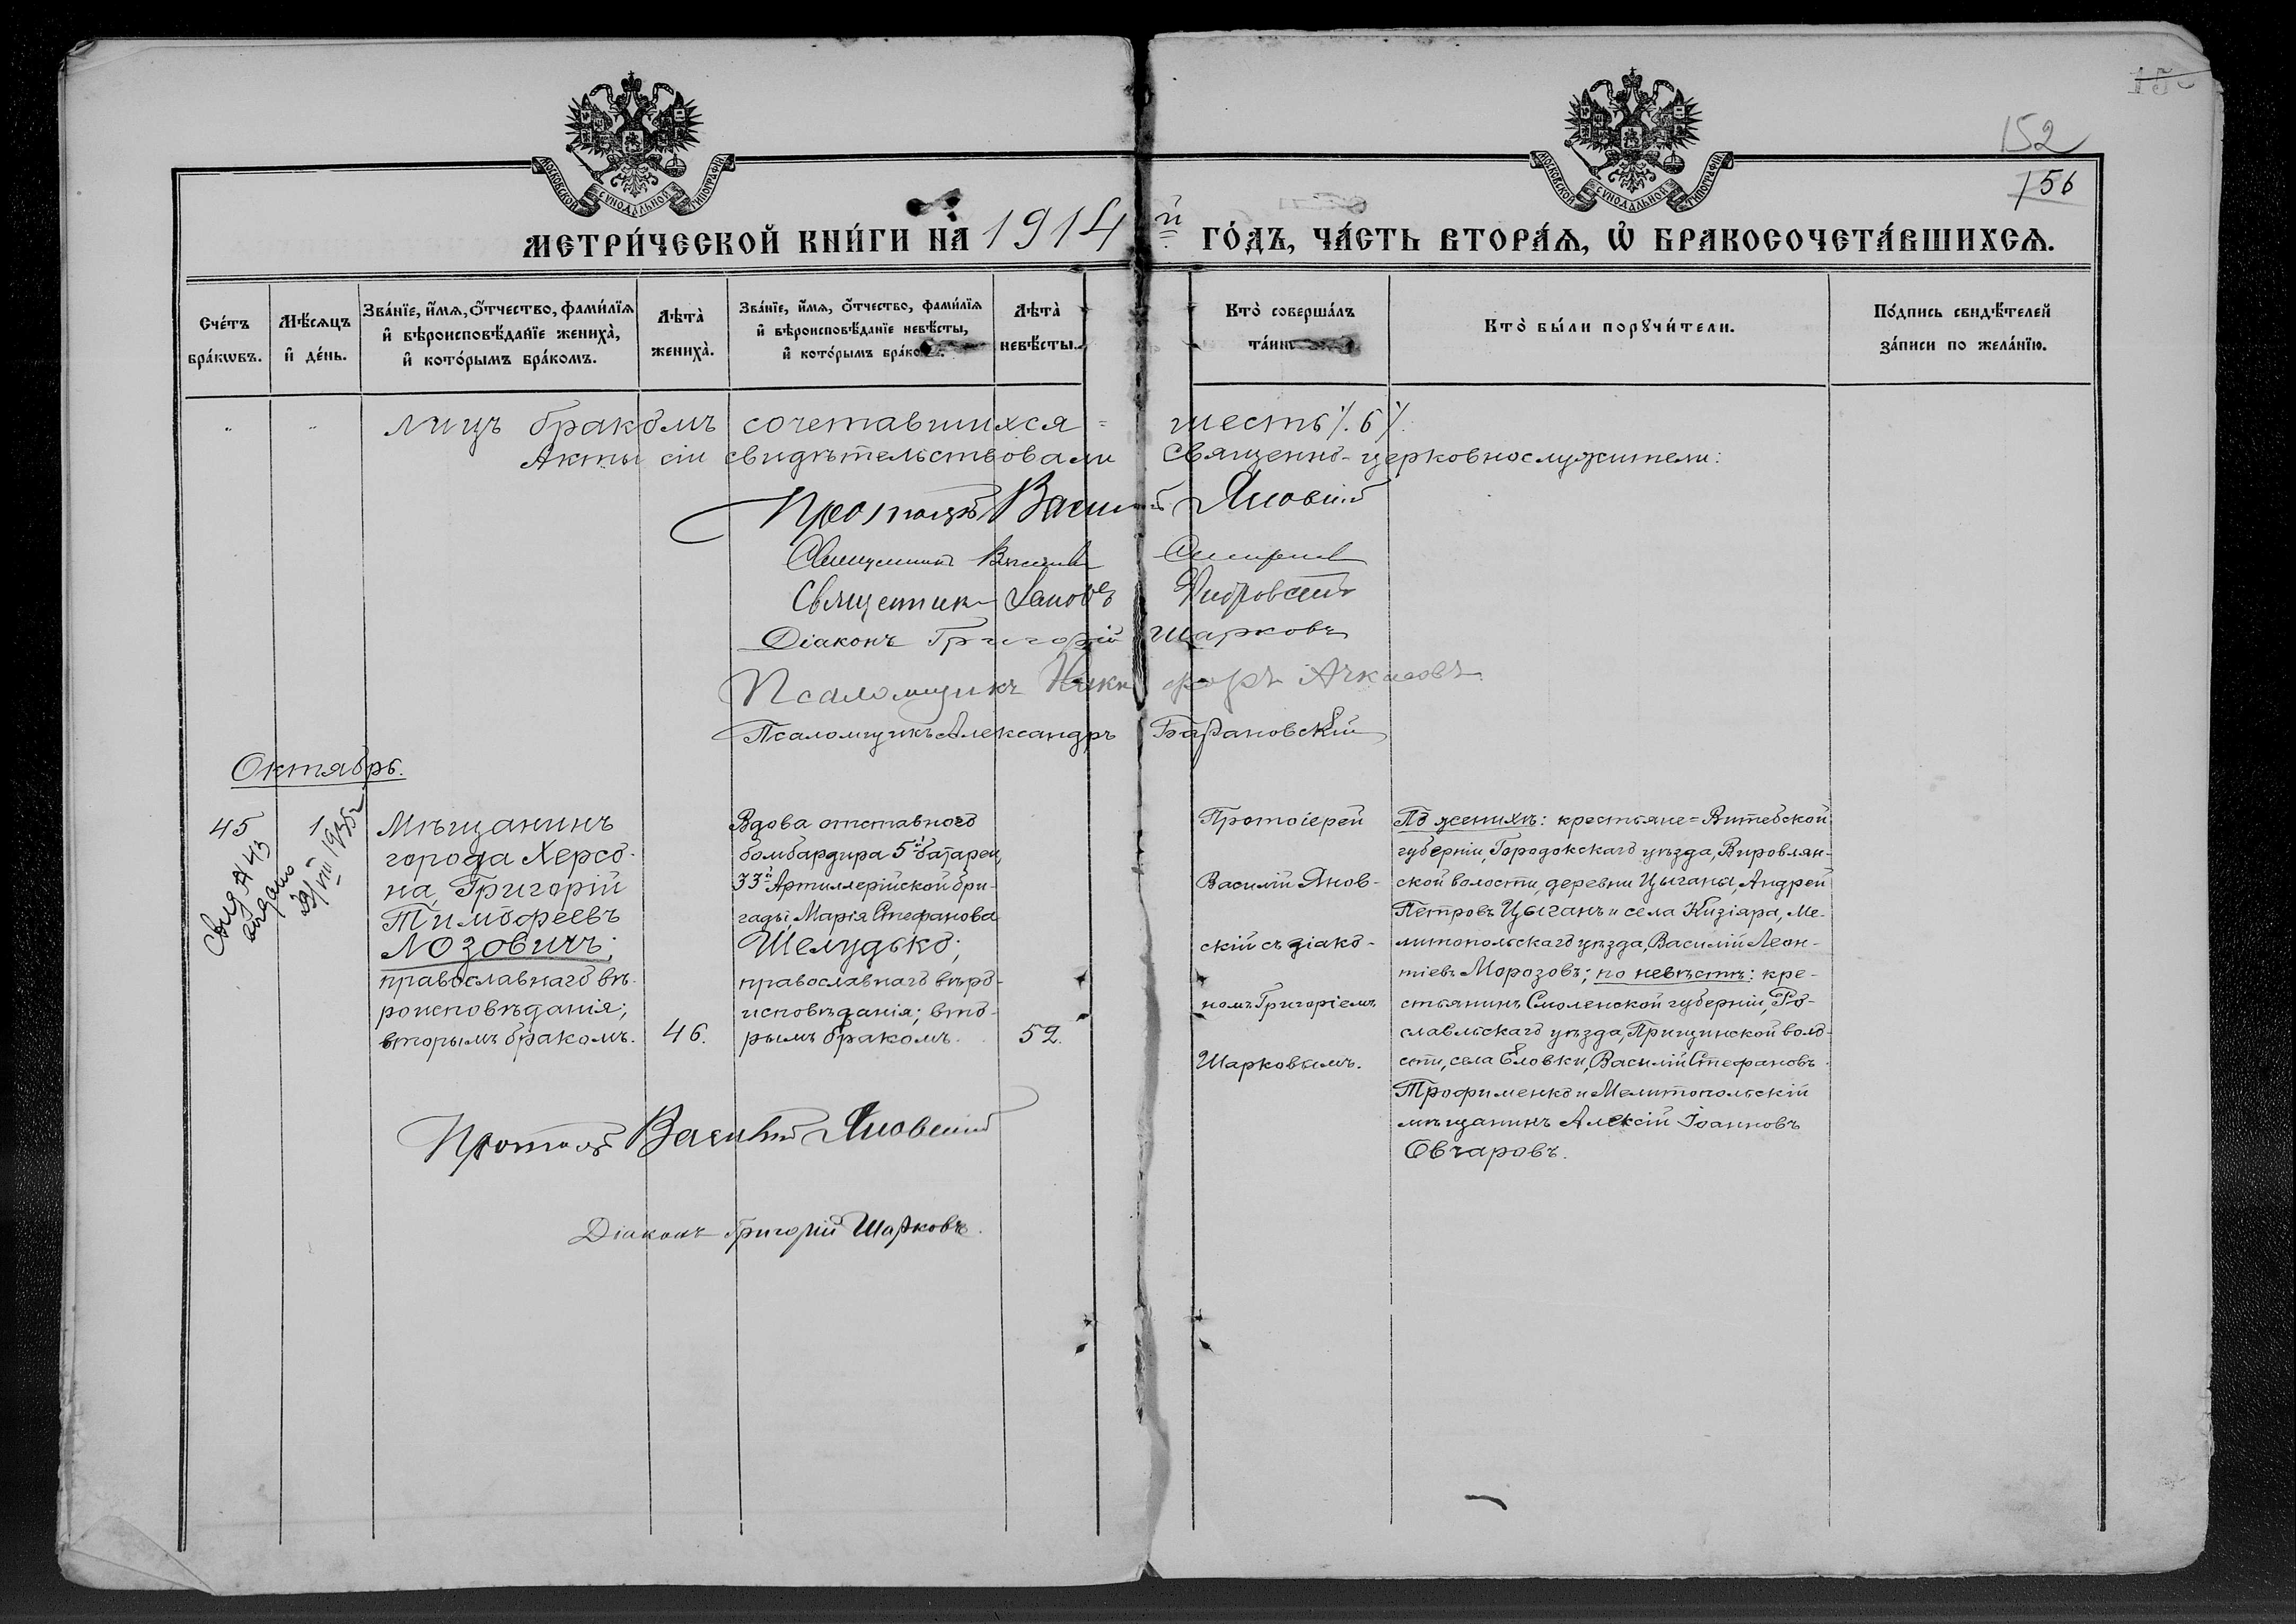 МОСКОВСКОЙ СУНОДАЛЬНОЙ ТИПОГРАФІИ
МОСКОВСКОЙ СУНОДАЛЬНОЙ ТИПОГРАФІИ
152
156
МЕТРИ́ЧЕСКОЙ КНИ́ГИ НА 1914й ГО́ДЪ, ЧА́СТЬ ВТОРА́Ѧ, Ѡ҆ БРАКОСОЧЕТА́ВШИХСѦ.
Сче́тъ
бра́кωвъ.
Мѣ́сѧцъ
и҆ де́нь.
Зва́нїе, и҆́мѧ, ѻ҆́тчество, фами́лїѧ
и҆ вѣроисповѣ́данїе жениха̀,
и҆ кото́рымъ бра́комъ.
Лѣта̀
жениха̀.
Зва́нїе, и҆́мѧ, ѻ҆́тчество, фами́лїѧ
и҆ вѣроисповѣ́данїе невѣ́сты,
и҆ кото́рымъ бра́ко
Лѣта̀
невѣ́сты.
Кто̀ соверша́лъ
та́ин
Кто̀ бы́ли порꙋчи́тели.
По́дпись свидѣ́телей
за́писи по жела́нїю.
" " лицъ бракомъ сочетавшихся = шесть /. 6 /.
Акты сіи свидѣтельствовали Священно-церковнослужители:
Василій Яновскій
Священникъ Василій
Священникъ
Діаконъ Григорій Шарковъ
Псаломщикъ Никифоръ
Псаломщикъ Александръ Барановскій
Октябрь.
45
1
Свид № 43
выдано
VIII 1935 г
Мѣщанинъ
города Херсо-
на, Григорій
Тимофеевъ
ЛОЗОВИЧЪ;
православнаго вѣ-
роисповѣданія;
вторымъ бракомъ.
46.
Вдова отставного
бомбардира 5й батареи,
33й Артиллерійской бри-
гады, Марія Стефанова
Шелудько;
православнаго вѣро-
исповѣданія; вто-
рымъ бракомъ.
52.
Протоіерей
Василій Янов-
скій съ діако-
номъ Григоріемъ
Шарковымъ.
По женихѣ: крестьяне = Витебской
губерніи, Городокскаго уѣзда, Вировлян-
ской волости, деревни Цыганы, Андрей
Петровъ Цыганъ и села Кизіяра, Ме-
литопольскаго уѣзда, Василій Леон-
тіевъ Морозовъ; по невѣстѣ: кре-
стьянинъ Смоленской губерніи, Ро-
славльскаго уѣзда, Пригцинской воло-
сти, села Еловки, Василій Стефановъ
Трофименко и Мелитопольскій
мѣщанинъ Алексій Іоанновъ
Овчаровъ.
Василій Яновскій
Діаконъ Григорій Шарковъ.